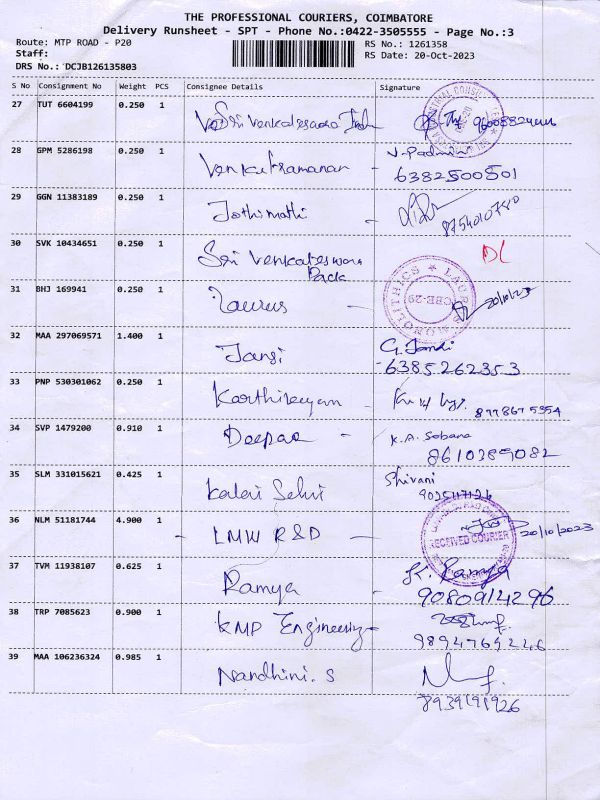 THE PROFESSIONAL COURIERS, COIMBATORE
Delivery Runsheet - SPT - Phone No.:0422-3505555 - Page No.:3
Route: MTP ROAD - P20
RS No.: 1261358
Staff:
RS Date: 20-Oct-2023
DRS No.: DCJB126135803
S No Consignment No Weight PCS Consignee Details Signature
27 TUT 6604199 0.250 1 Sri Venkateswara
28 GPM 5286198 0.250 1 Venkatramanan - V. Padmini
6382500501
29 GGN 11383189 0.250 1 Jothimathi -
8754010780
30 SVK 10434651 0.250 1 Sri Venkateswara DL
Pack
31 BHJ 169941 0.250 1 Taurus - 20/10/23
CBE-29
32 MAA 297069571 1.400 1 Jansi G. Jansi
6385262353
33 PNP 530301062 0.250 1 Karthikeyan -
8778675554
34 SVP 1479200 0.910 1 Deepa - K.A. Sobana
8610389082
35 SLM 331015621 0.425 1 Kalai Selvi Shivani
9025117126
36 NLM 51181744 4.900 1 - LMW R&D - 20/10/2023
RECEIVED COURIER
37 TVM 11938107 0.625 1 Ramya K. Ramya
9080914296
38 TRP 7085623 0.900 1 KMP Engineering -
9894769246
39 MAA 106236324 0.985 1 Nandhini. S
8939191926